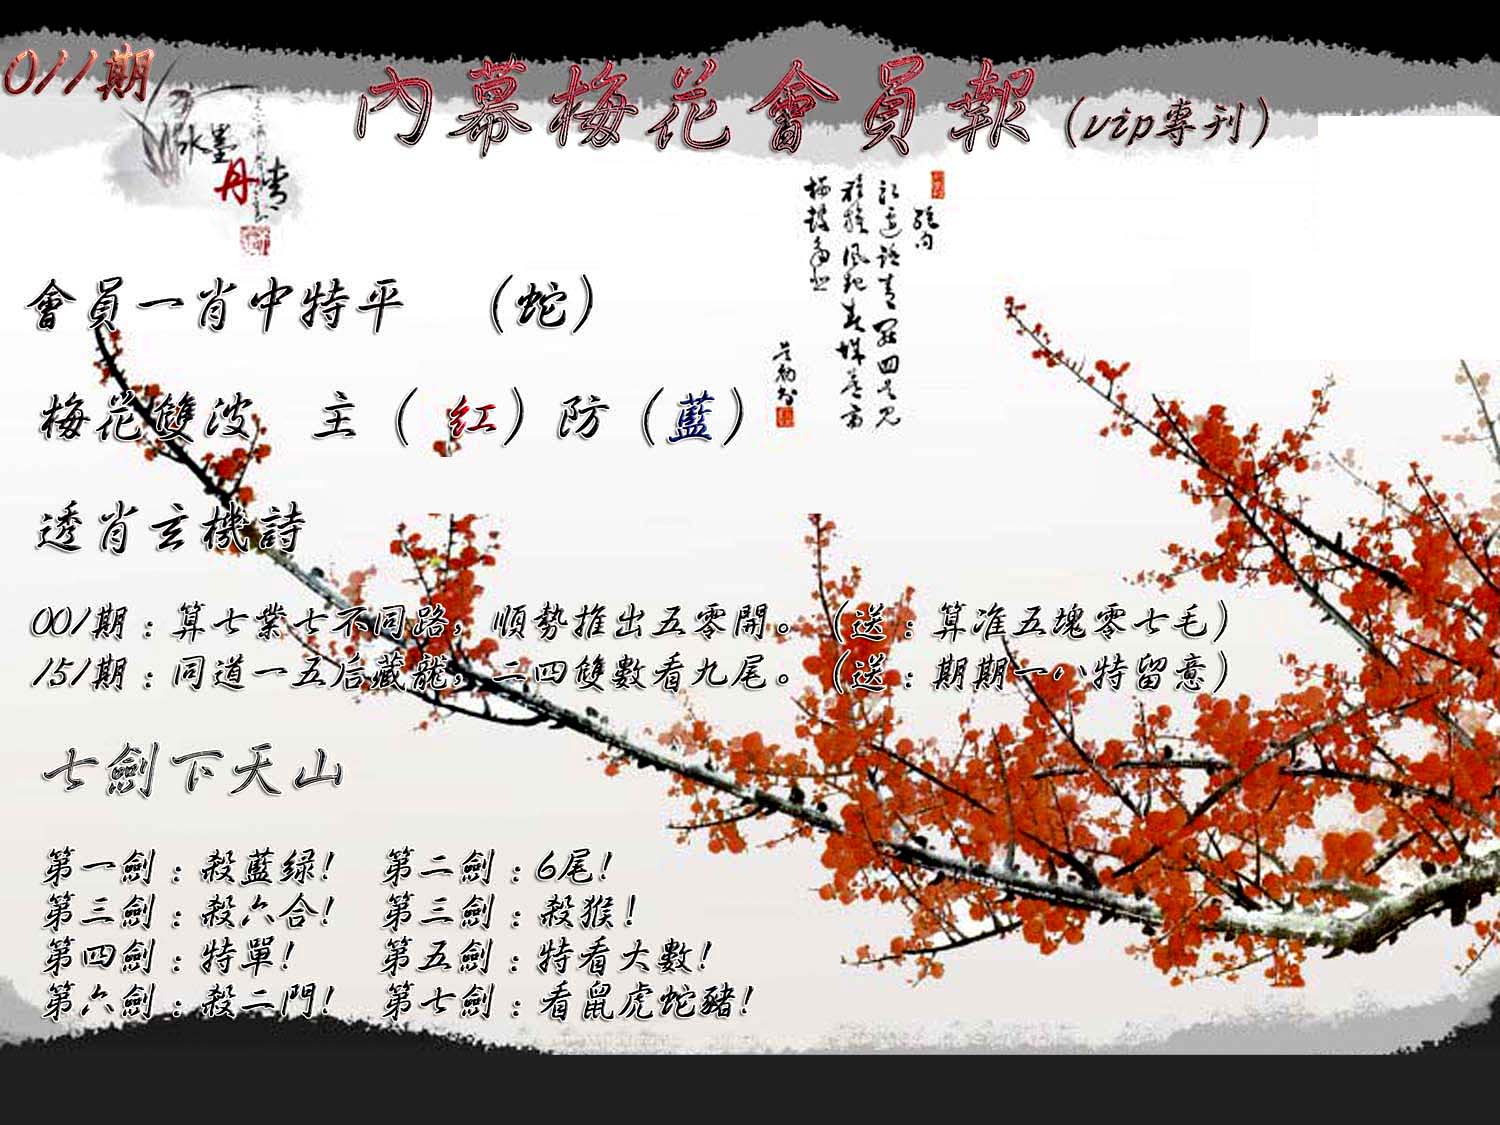 011期
內幕梅花會員報(vip專刊)
水墨
丹青
絕句
會員一肖中特平 (蛇)
梅花雙波 主(紅)防(藍)
透肖玄機詩
001期:算七業七不同路,順勢推出五零開。(送:算准五塊零七毛)
151期:同道一五后藏龍,二四雙數看九尾。(送:期期一八特留意)
七劍下天山
第一劍:殺藍绿! 第二劍:6尾!
第三劍:殺六合! 第三劍:殺猴!
第四劍:特單! 第五劍:特看大數!
第六劍:殺二門! 第七劍:看鼠虎蛇豬!